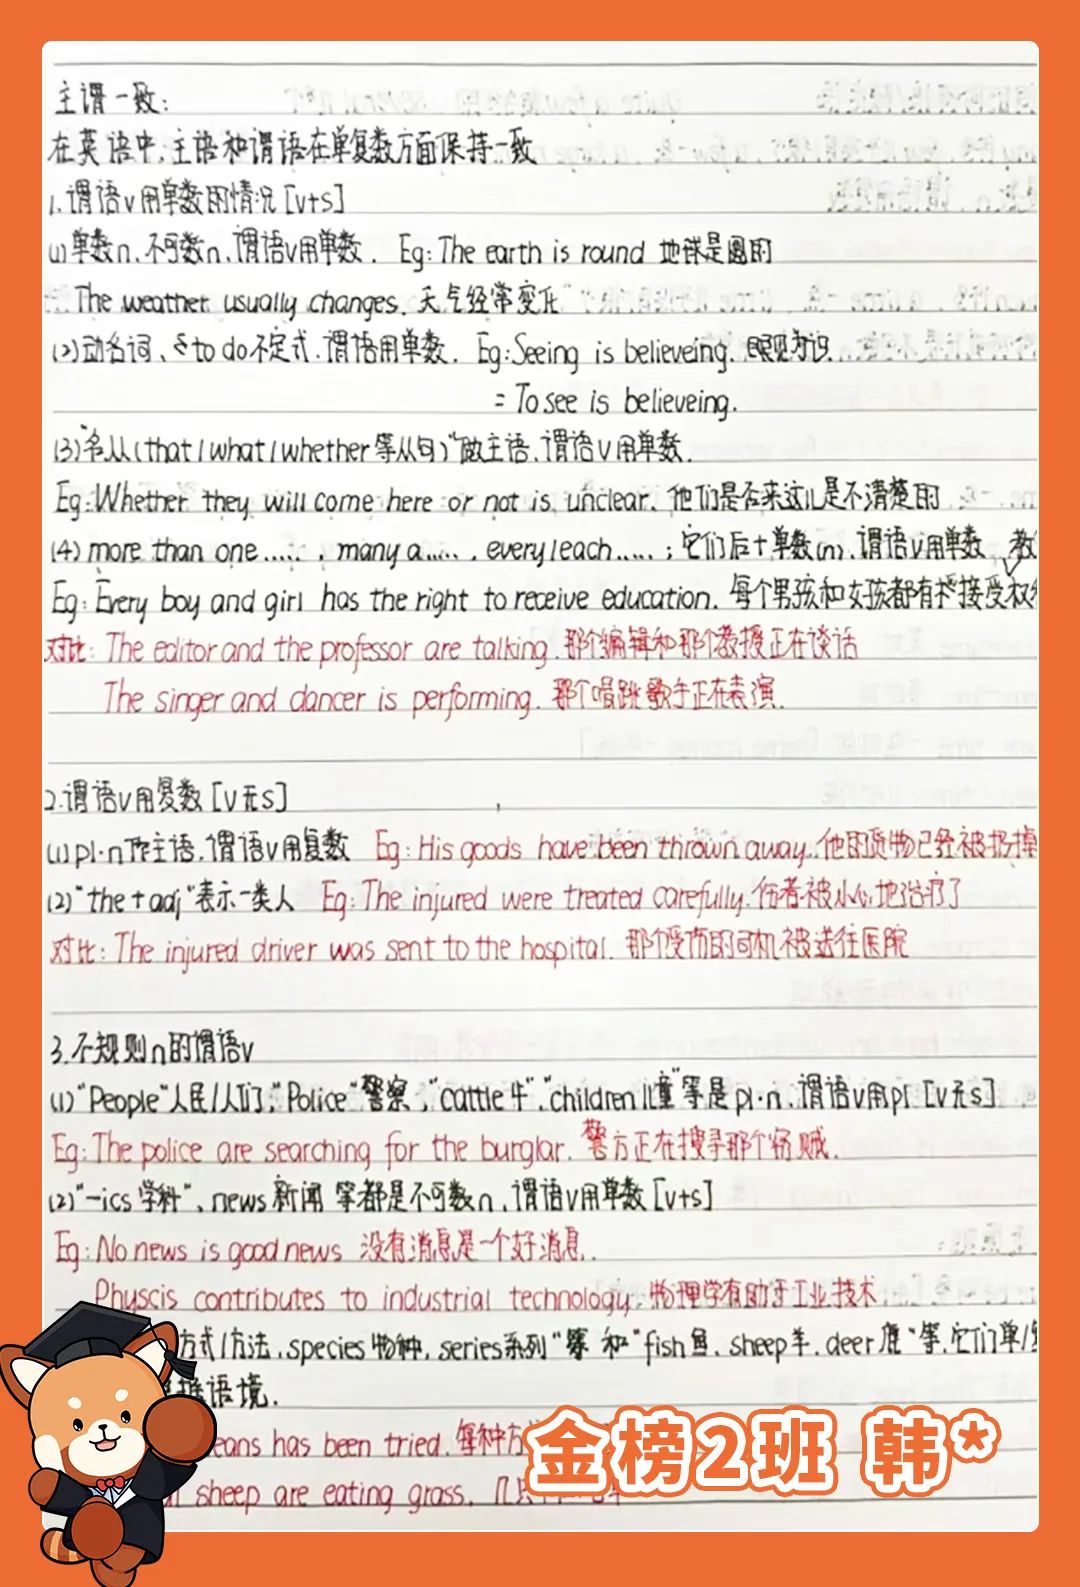 主谓一致:
在英语中,主语和谓语在单复数方面保持一致
1.谓语v用单数的情况[v+s]
(1)单数n、不可数n,谓语v用单数. Eg: The earth is round 地球是圆的
The weather usually changes. 天气经常变化
(2)动名词、to do不定式.谓语用单数. Eg: Seeing is believeing. 眼见为识.
= To see is believeing.
(3)"名从(that/what/whether等从句)"做主语,谓语v用单数.
Eg: Whether they will come here or not is unclear. 他们是否来这儿是不清楚的
(4) more than one......, many a......, every/each......; 它们后+单数(n),谓语v用单数
Eg: Every boy and girl has the right to receive education. 每个男孩和女孩都有接受
对比: The editor and the professor are talking. 那个编辑和那个教授正在谈话
The singer and dancer is performing. 那个唱跳歌手正在表演.
2.谓语v用复数[v无s]
(1)pl·n作主语,谓语v用复数 Eg: His goods have been thrown away. 他的货物已经被扔掉
(2)"the + adj"表示一类人 Eg: The injured were treated carefully. 伤者被小心地治疗了
对比: The injured driver was sent to the hospital. 那个受伤的司机被送往医院
3.不规则n的谓语v
(1)"People"人民/人们,"Police"警察,"cattle牛","children儿童"等是pl·n,谓语v用pl [v无s]
Eg: The police are searching for the burglar. 警方正在搜寻那个窃贼.
(2)"-ics学科"、news新闻 等都是不可数n,谓语v用单数[v+s]
Eg: No news is good news 没有消息是一个好消息.
Physcis contributes to industrial technology. 物理学有助于工业技术
方式/方法, species物种, series系列"等 和"fish鱼, sheep羊, deer鹿"等,它们单/
语境.
eans has been tried. 每种方
sheep are eating grass. 几只
金榜2班 韩*